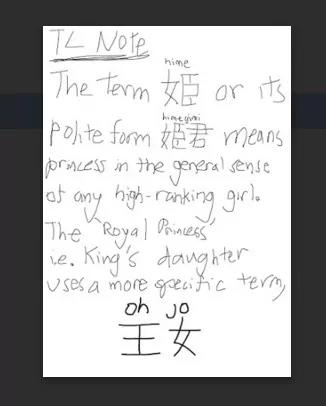 TL Note
hime
The term 姫 or its
himegimi
polite form 姫君 means
princess in the general sense
of any high-ranking girl.
The "Royal Princess"
i.e. King's daughter
uses a more specific term,
oh jo
王女